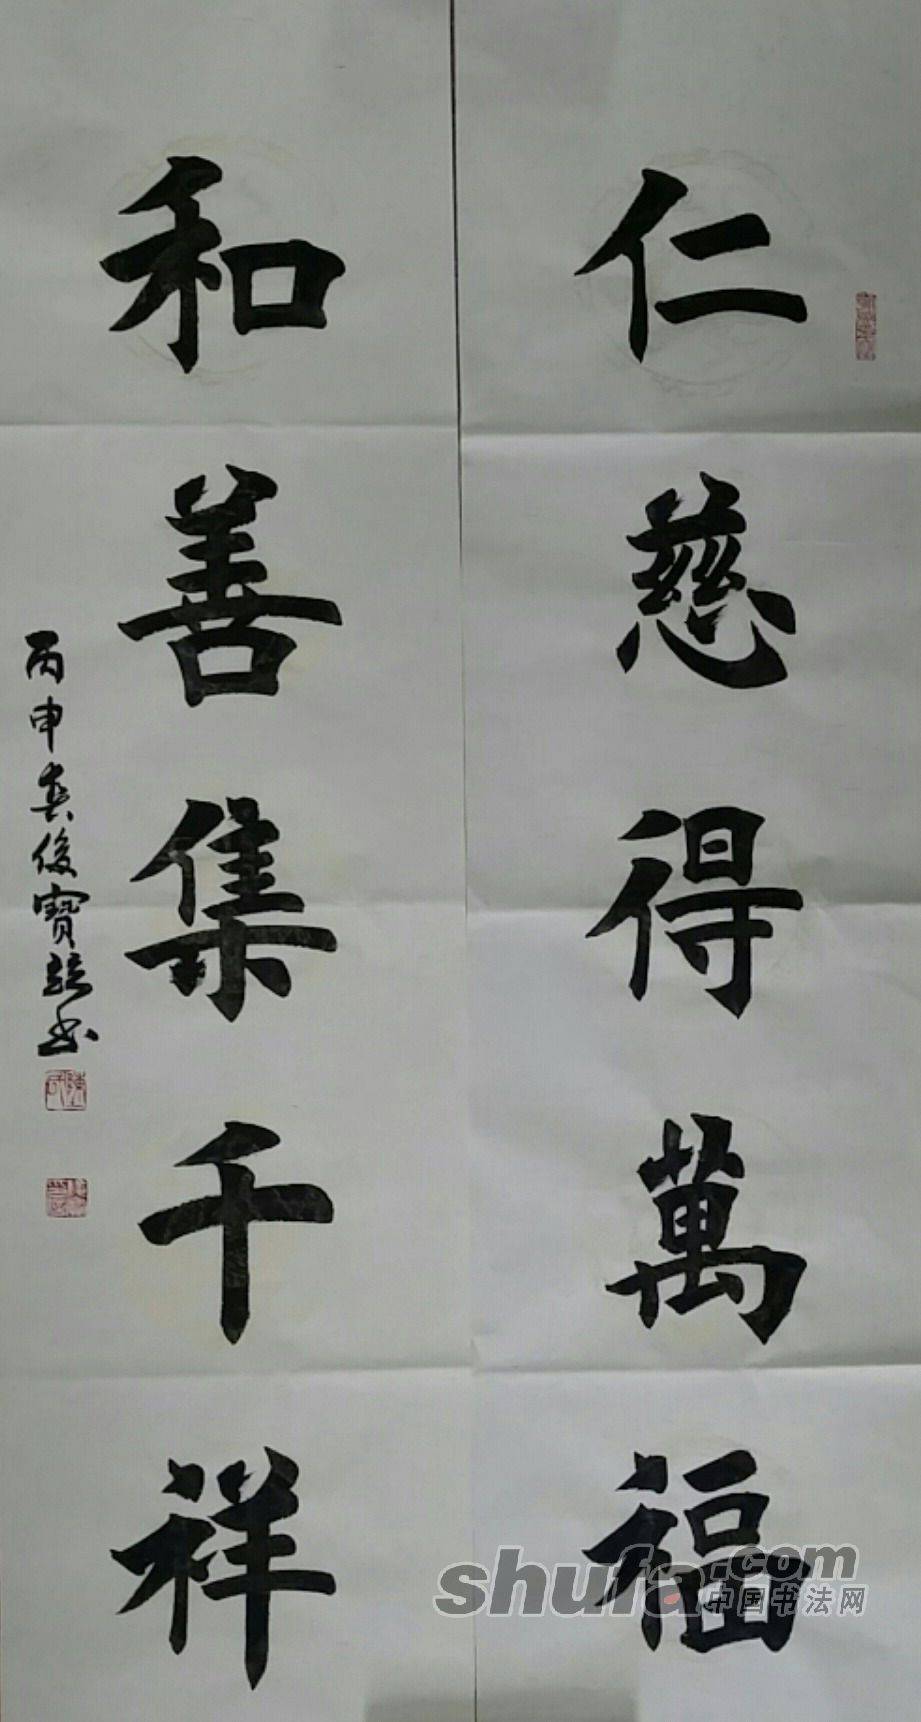 仁慈得萬福
和善集千祥
丙申春俊寶
書
shufa.com
中国书法网